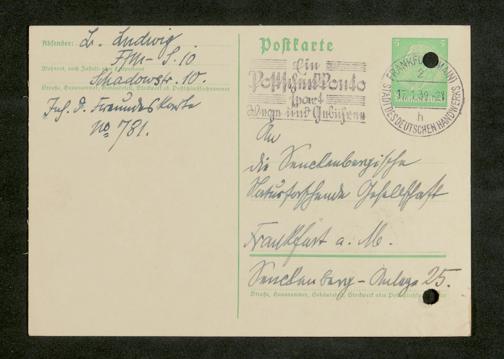 Absender: L. Ludwig.
Ffm - S. 10
Wohnort, auch Zustell- oder Leitpostamt
Schadowstr. 10.
Straße, Hausnummer, Gebäudeteil, Stockwerk od. Postschließfachnummer
Inh. d. Freundeskarte
No. 781.
Postkarte
Ein
Postscheckkonto
spart
Wege und Gebühren
5
FRANKFURT (MAIN)
2
17.1.39
h
STADT DES DEUTSCHEN HANDWERKS
An
die Senckenbergische
Naturforschende Gesellschaft
Frankfurt a. M.
Senckenberg-Anlage 25.
Straße, Hausnummer, Gebäudeteil, Stockwerk oder Postschließfachnummer